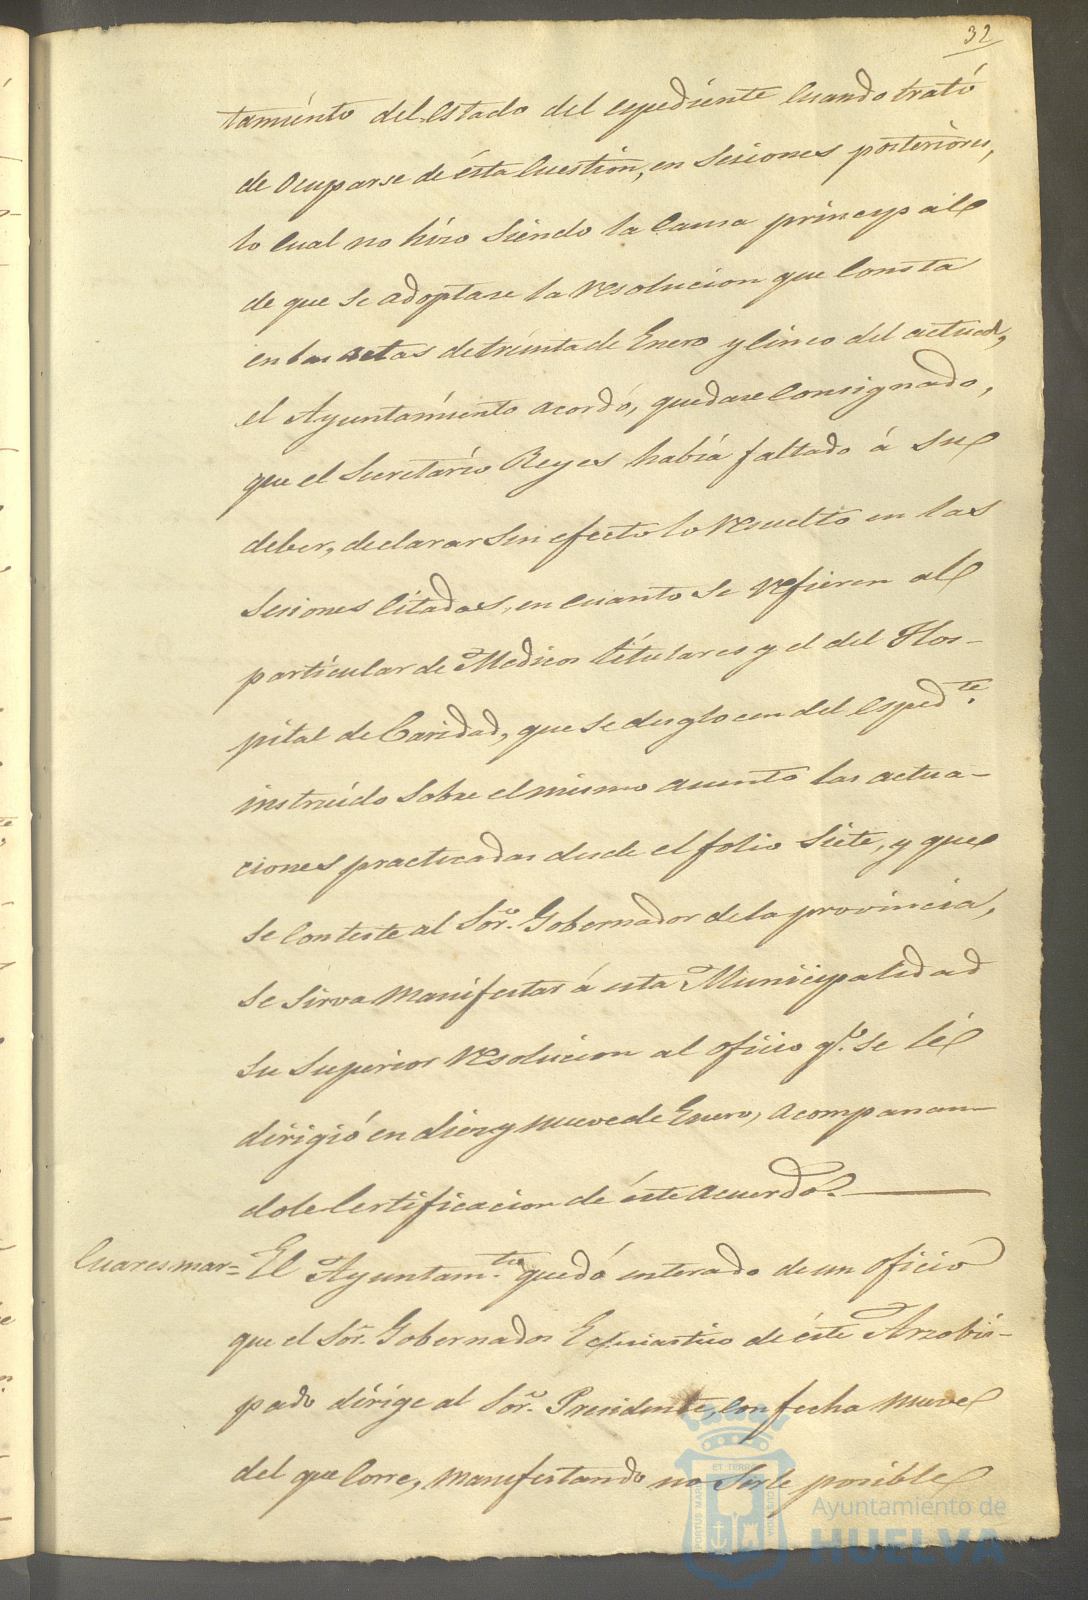 32
tamiento del estado del espediente cuando trató
de ocuparse de ésta cuestion, en sesiones posteriores,
lo cual no hizo siendo la causa principal
de que se adoptase la resolucion que consta
en las actas de treinta de Enero y cinco del actual,
el Ayuntamiento acordó, quedase consignado,
que el Secretario Reyes habia faltado á su
deber, declarar sin efecto lo resuelto en las
sesiones citadas, en cuanto se refieren al
particular de Medicos titulares y el del Hos-
pital de Caridad, que se desglocen del esped.te
instruido sobre el mismo asunto las actua-
ciones practicadas desde el folio siete, y que
se conteste al Sõr. Gobernador de la provincia,
se sirva manifestar á esta Municipalidad
su superior resolucion al oficio q.e se lé
dirigió en diez y nueve de Enero, acompanan-
dole certificacion de éste acuerdo.
Cuaresmar= El Ayuntam.to quedó enterado de un oficio
que el Sõr. Gobernador Eclesiastico de éste Arzobis-
pado dirige al Sõr. Presidente, con fecha nueve
del que corre, manifestando no serle posible
PORTUS MARIS ET TERRAE CUSTODIA
Ayuntamiento de
HUELVA